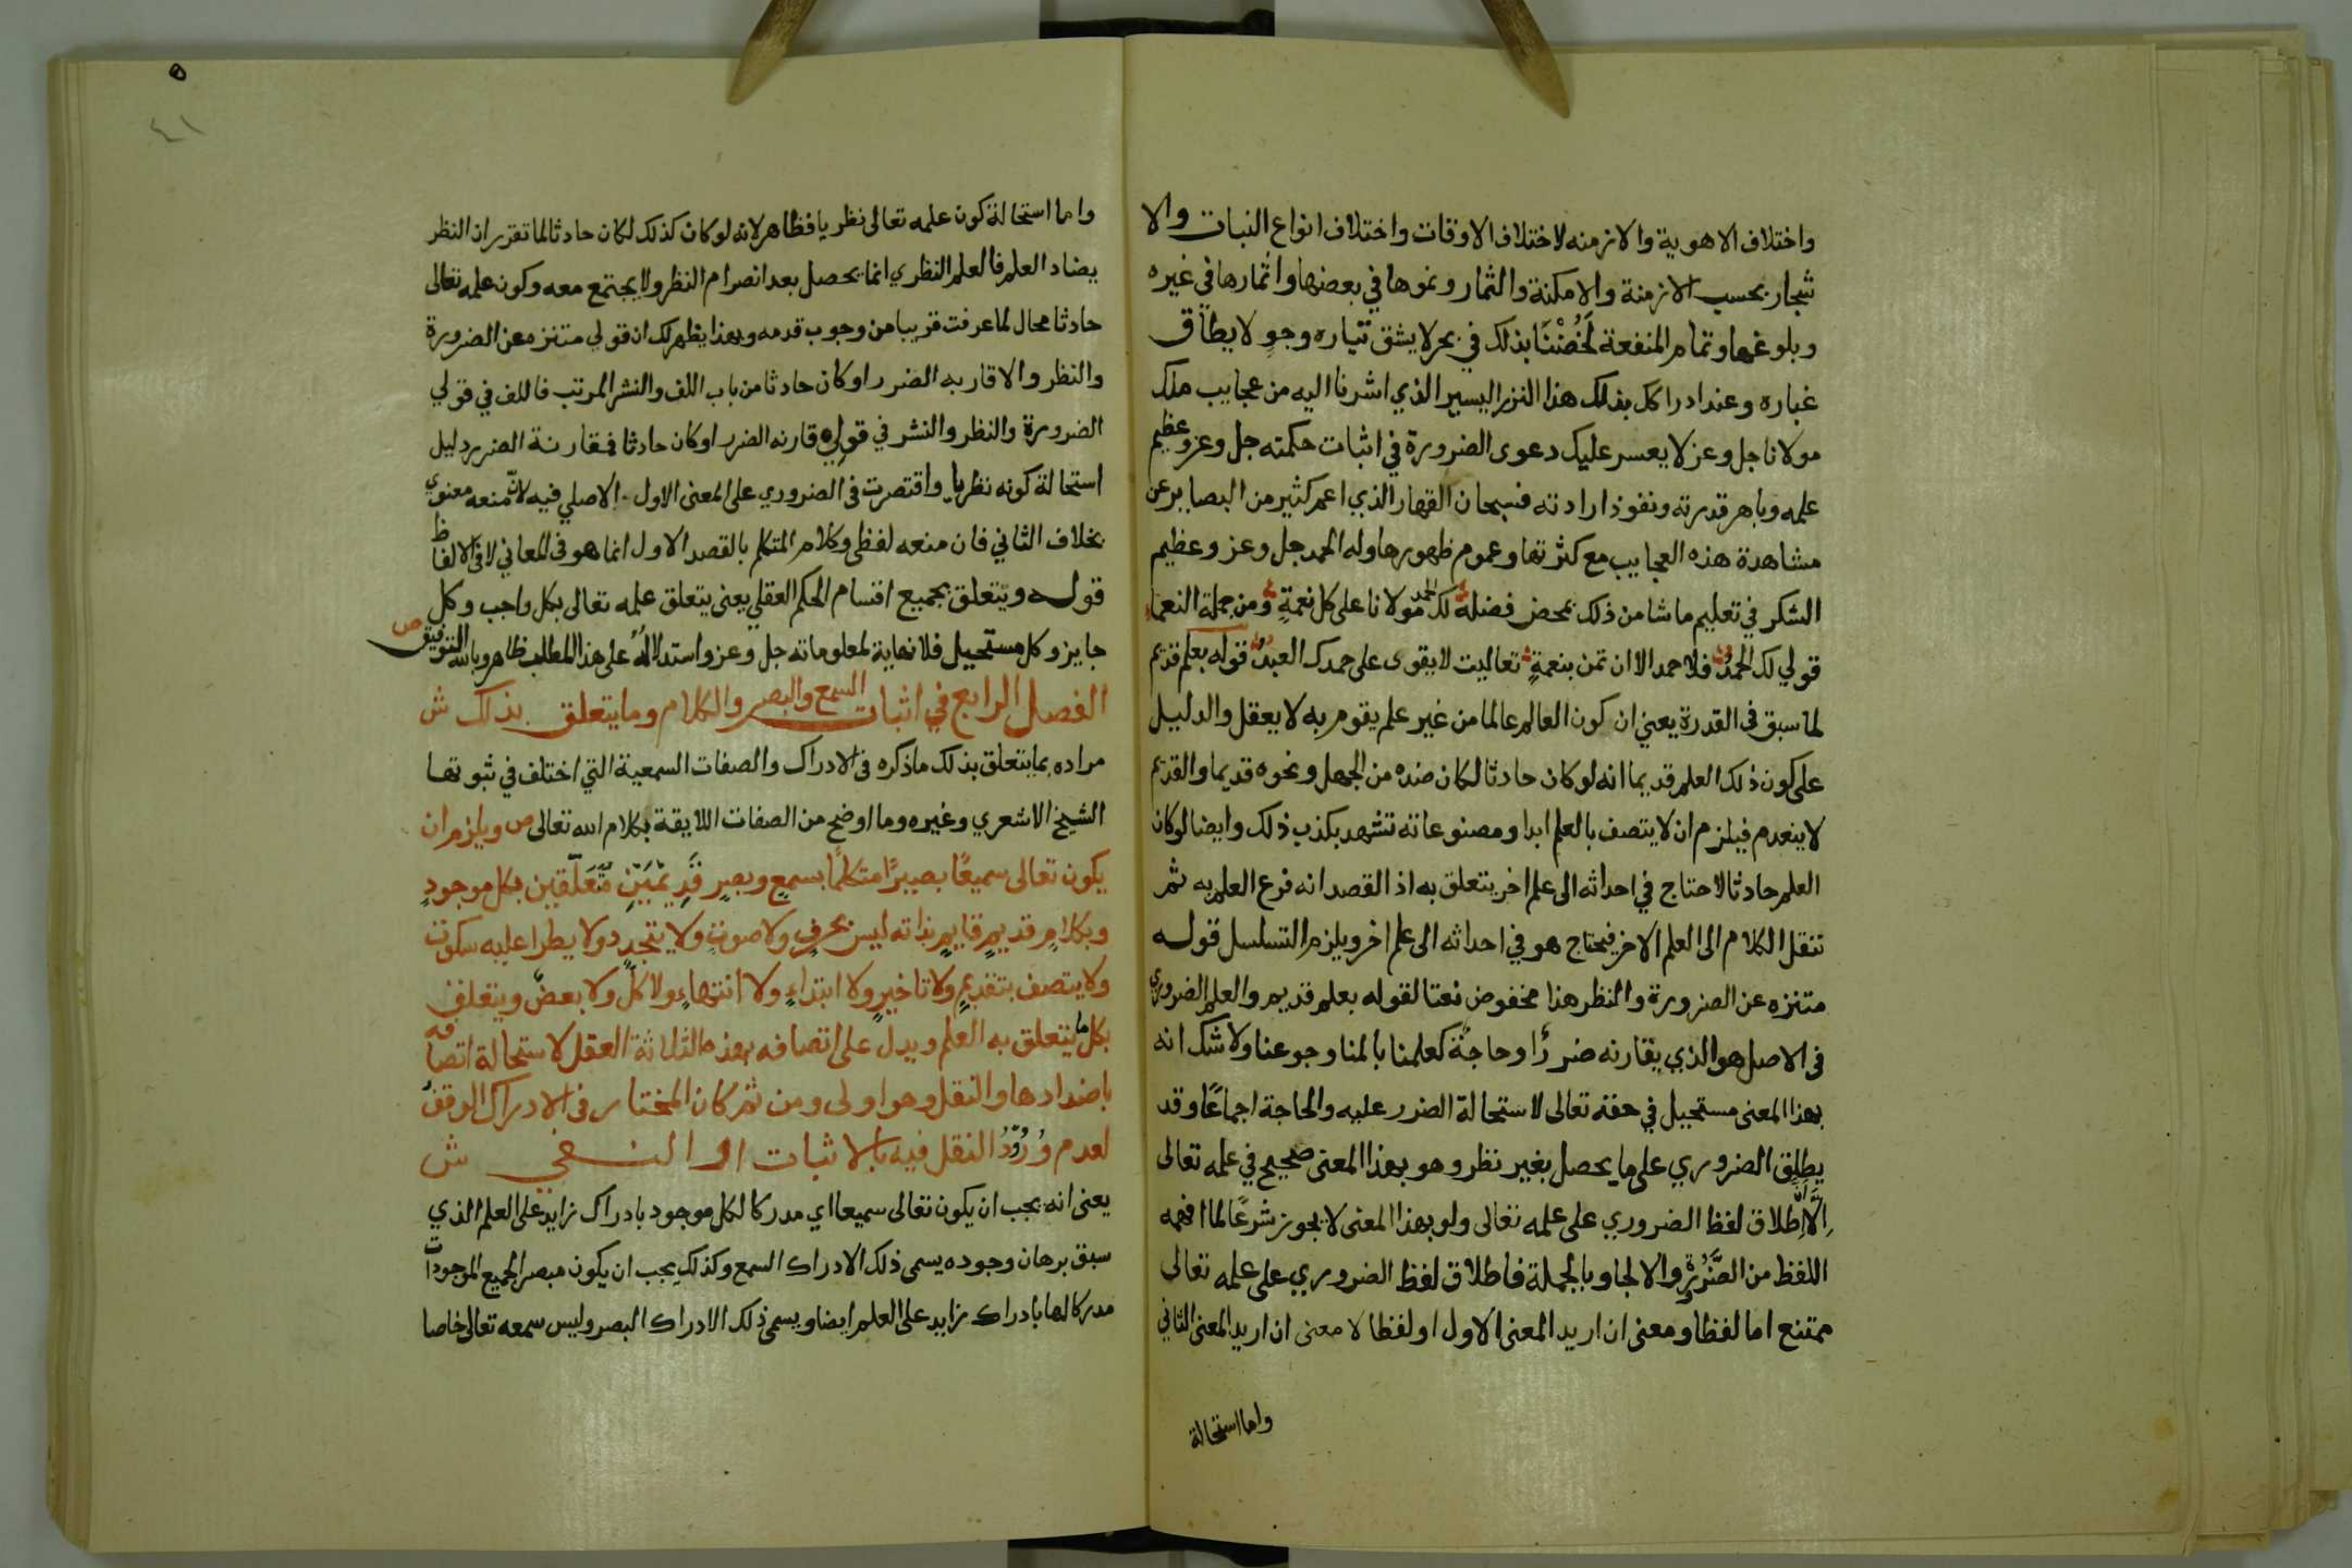 واختلاف الاهوية والازمنه لاختلاف الاوقات واختلاف انواع النبات والا
شجار بحسب الازمنة والامكنة والثمار ونموها في بعضها واثمارها في غيره
وبلوغها وتمام المنفعة لخضنا بذلك في بحر لا يشق تياره وجو لا يطاق
غباره وعند ادراكك بذلك هذا النزر اليسير الذي اشرنا اليه من عجايب ملك
مولانا جل وعز لا يعسر عليك دعوى الضرورة في اثبات حكمته جل وعز وعظيم
علمه وباهر قدرته ونفوذ ارادته فسبحان القهار الذي اعمى كثير من البصاير عن
مشاهدة هذه العجايب مع كثرتها وعموم ظهورها وله الحمد جل وعز وعظيم
الشكر في تعليم ما شا من ذلك بمحض فضله لك الحمد مولانا على كل نعمةٍ ومن جملة النعما
قولي لك الحمدُ فلا حمد الا ان تمن بنعمةٍ تعاليت لا يقوى على حمدك العبدُ قوله بعلم قديم
لما سبق في القدرة يعني ان كون العالم عالما من غير علم يقوم به لا يعقل والدليل
على كون ذلك العلم قديما انه لو كان حادثا لكان ضده من الجهل ونحوه قديما والقديم
لا ينعدم فيلزم ان لا يتصف بالعلم ابدا ومصنوعاته تشهد بكذب ذلك وايضا لو كان
العلم حادثا لاحتاج في احداثه الى علم اخر يتعلق به اذ القصد انه فرع العلم به ثم
ننقل الكلام الى العلم الاخر فيحتاج هو في احداثه الى علم اخر ويلزم التسلسل قوله
متنزه عن الضرورة والنظر هنا مخفوض نعتا لقوله بعلم قديم والعلم الضروري
في الاصل هو الذي يقارنه ضررٌ او حاجةٌ كعلمنا بالمنا وجوعنا ولا شك انه
بهذا المعنى مستحيل في حقه تعالى لاستحالة الضرر عليه والحاجة اجماعًا وقد
يطلق الضروري على ما يحصل بغير نظر وهو بهذا المعنى صحيح في علمه تعالى
الا ان اطلاق لفظ الضروري على علمه تعالى ولو بهذا المعنى لا يجوز شرعًا لما افهمه
اللفظ من الضرورة والالجا وبالجملة فاطلاق لفظ الضروري على علمه تعالى
ممتنع اما لفظا ومعنى ان اريد المعنى الاول او لفظا لا معنى ان اريد المعنى الثاني
واما استحالة
٥
٤١
واما استحالة كون علمه تعالى نظريا فظاهر لانه لو كان كذلك لكان حادثا لما تقرر ان النظر
يضاد العلم فالعلم النظري انما يحصل بعد انصرام النظر ولا يجتمع معه وكون علمه تعالى
حادثا محال لما عرفت قريبا من وجوب قدمه وبهذا يظهر لك ان قولي متنزه عن الضرورة
والنظر والا قاربه الضرر او كان حادثا من باب اللف والنشر المرتب فاللف في قولي
الضرورة والنظر والنشر في قولي قارنه الضرر او كان حادثا فمقارنة الضرر دليل
استحالة كونه نظريا واقتصرت في الضروري على المعنى الاول الاصلي فيه لانّ منعه معنوي
بخلاف الثاني فان منعه لفظي وكلام المتكلم بالقصد الاول انما هو في المعاني لا في الالفاظ
قوله ويتعلق بجميع اقسام الحكم العقلي يعني يتعلق علمه تعالى بكل واجب وكل
جايز وكل مستحيل فلا نهاية لمعلوماته جل وعز واستدلاله على هذا المطلب ظاهر وبالله التوفيق ص
الفصل الرابع في اثبات السمع والبصر والكلام وما يتعلق بذلك ش
مراده بما يتعلق بذلك ما ذكره في الادراك والصفات السمعية التي اختلف في ثبوتها
الشيخ الاشعري وغيره وما اوضح من الصفات اللايقة بكلام الله تعالى ص ويلزم ان
يكون تعالى سميعًا بصيرًا متكلمًا بسمعٍ وبصرٍ قديمين متعلقين بكل موجودٍ
وبكلامٍ قديمٍ قايمٍ بذاته ليس بحرفٍ ولا صوتٍ ولا يتجدد ولا يطرا عليه سكوت
ولا يتصف بتقديمٍ ولا تاخيرٍ ولا ابتداءٍ ولا انتهاءٍ ولا كلٍ ولا بعضٍ ويتعلق
بكل ما يتعلق به العلم ويدل على اتصافه بهذه الثلاثة العقل لاستحالة اتصافه
باضدادها والنقل وهو اولى ومن ثم كان المختار في الادراك الوقف
لعدم ورُودُ النقل فيه بالاثبات او النفي ش
يعني انه يجب ان يكون تعالى سميعا اي مدركا لكل موجود بادراك زايد على العلم الذي
سبق برهان وجوده يسمى ذلك الادراك السمع وكذلك يجب ان يكون مبصرا لجميع الموجودات
مدركا لها بادراك زايد على العلم ايضا ويسمى ذلك الادراك البصر وليس سمعه تعالى خاصا